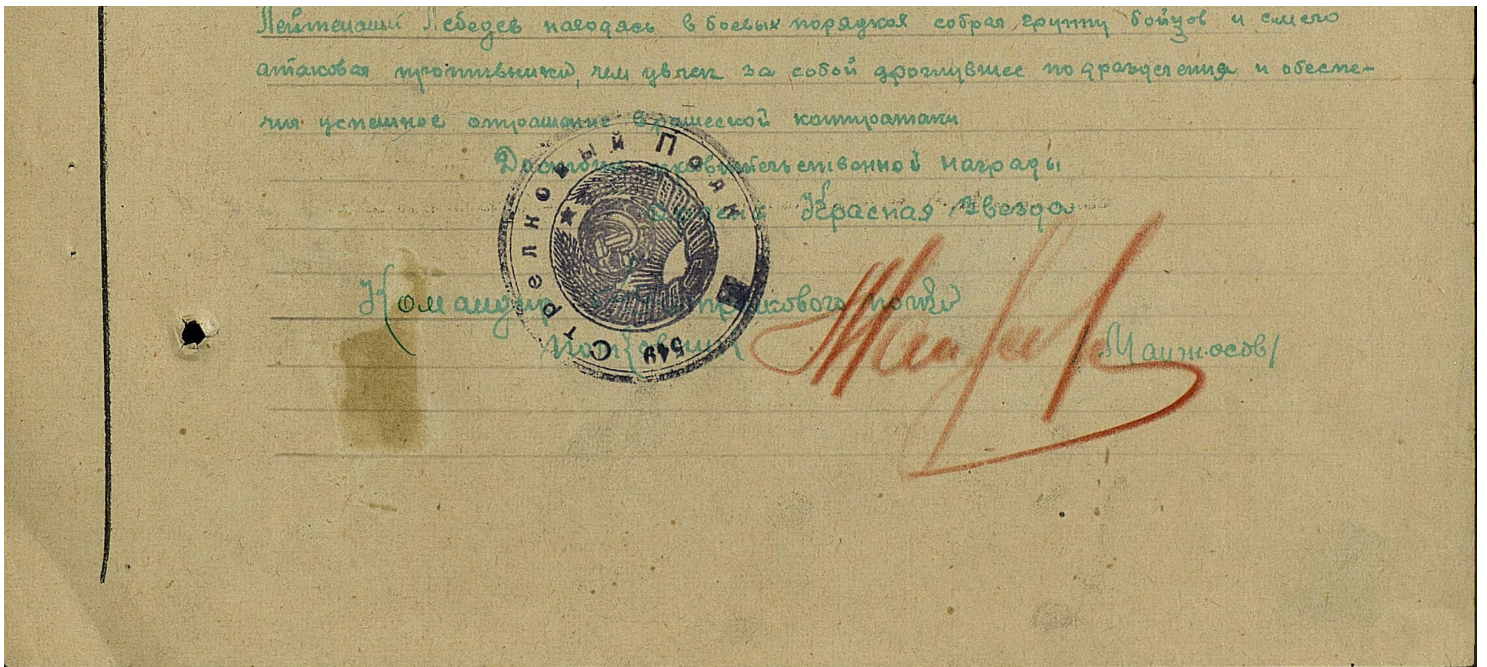 Лейтенант Лебедев находясь в боевых порядках собрал группу бойцов и смело
атаковал противника, чем увлек за собой дрогнувшее подразделение и обеспе-
чил успешное отражение вражеской контратаки
Достоин правительственной награды
ордена Красная Звезда
Командир стрелкового полка
Полковник /Манжосов/
549 Стрелковый Полк